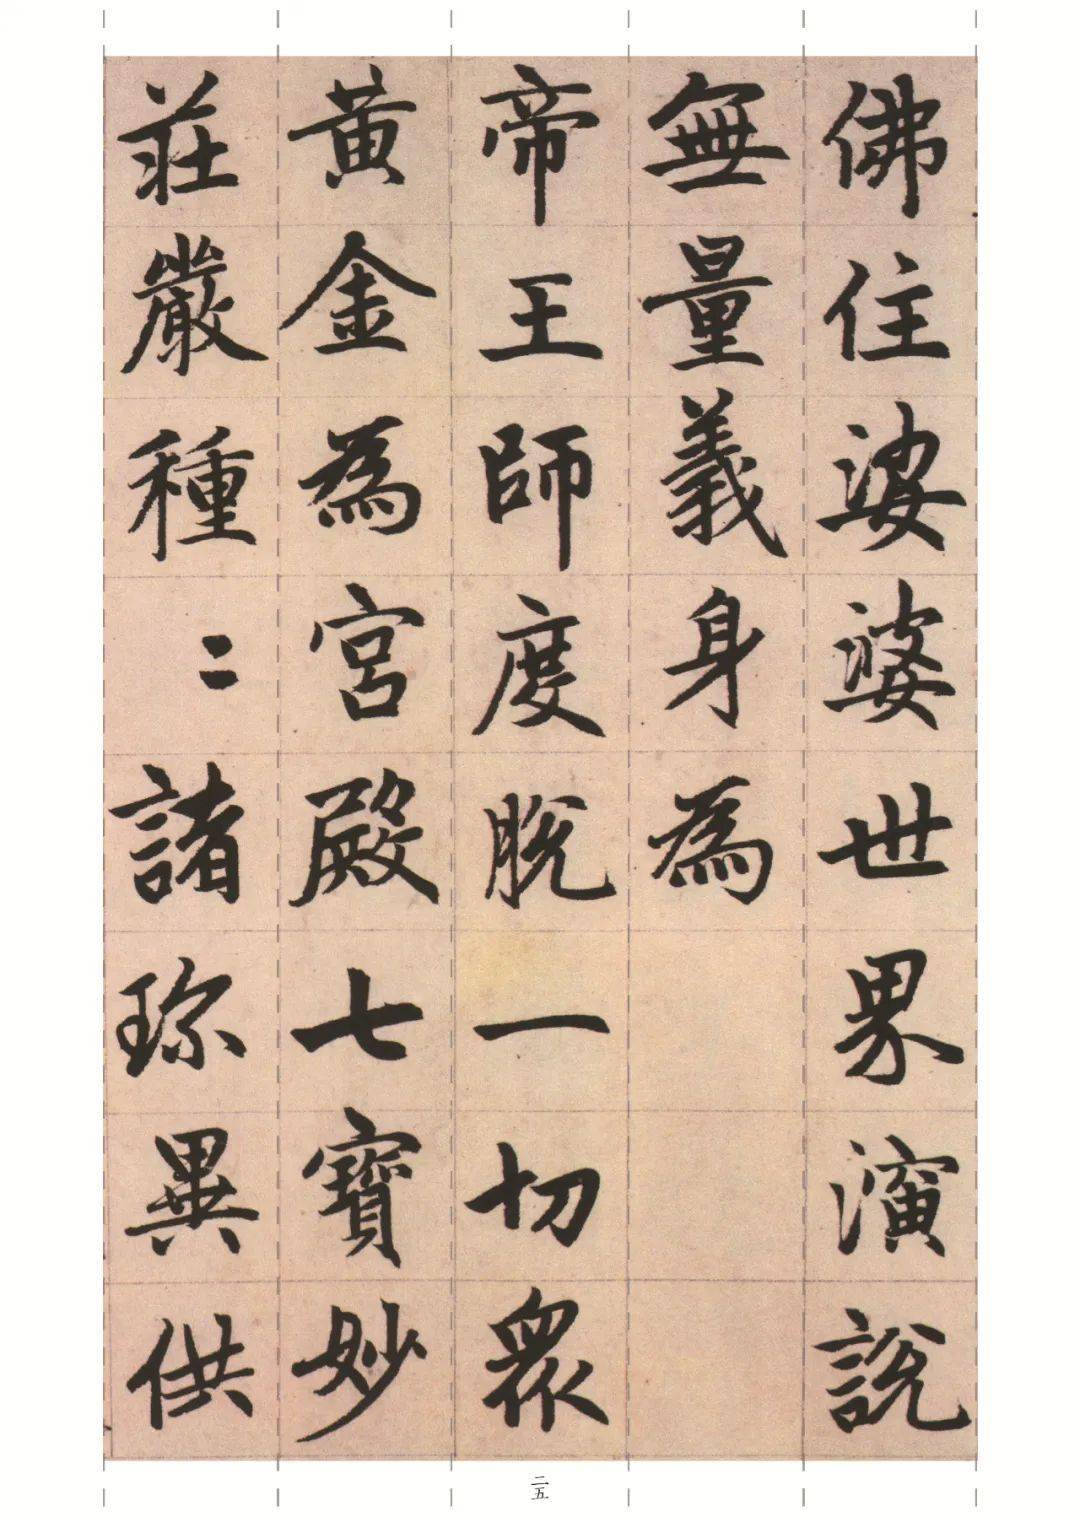 佛住娑婆世界演說
無量義身為
帝王師度脫一切眾
黃金為宮殿七寶妙
莊嚴種〻諸珎異供
二五